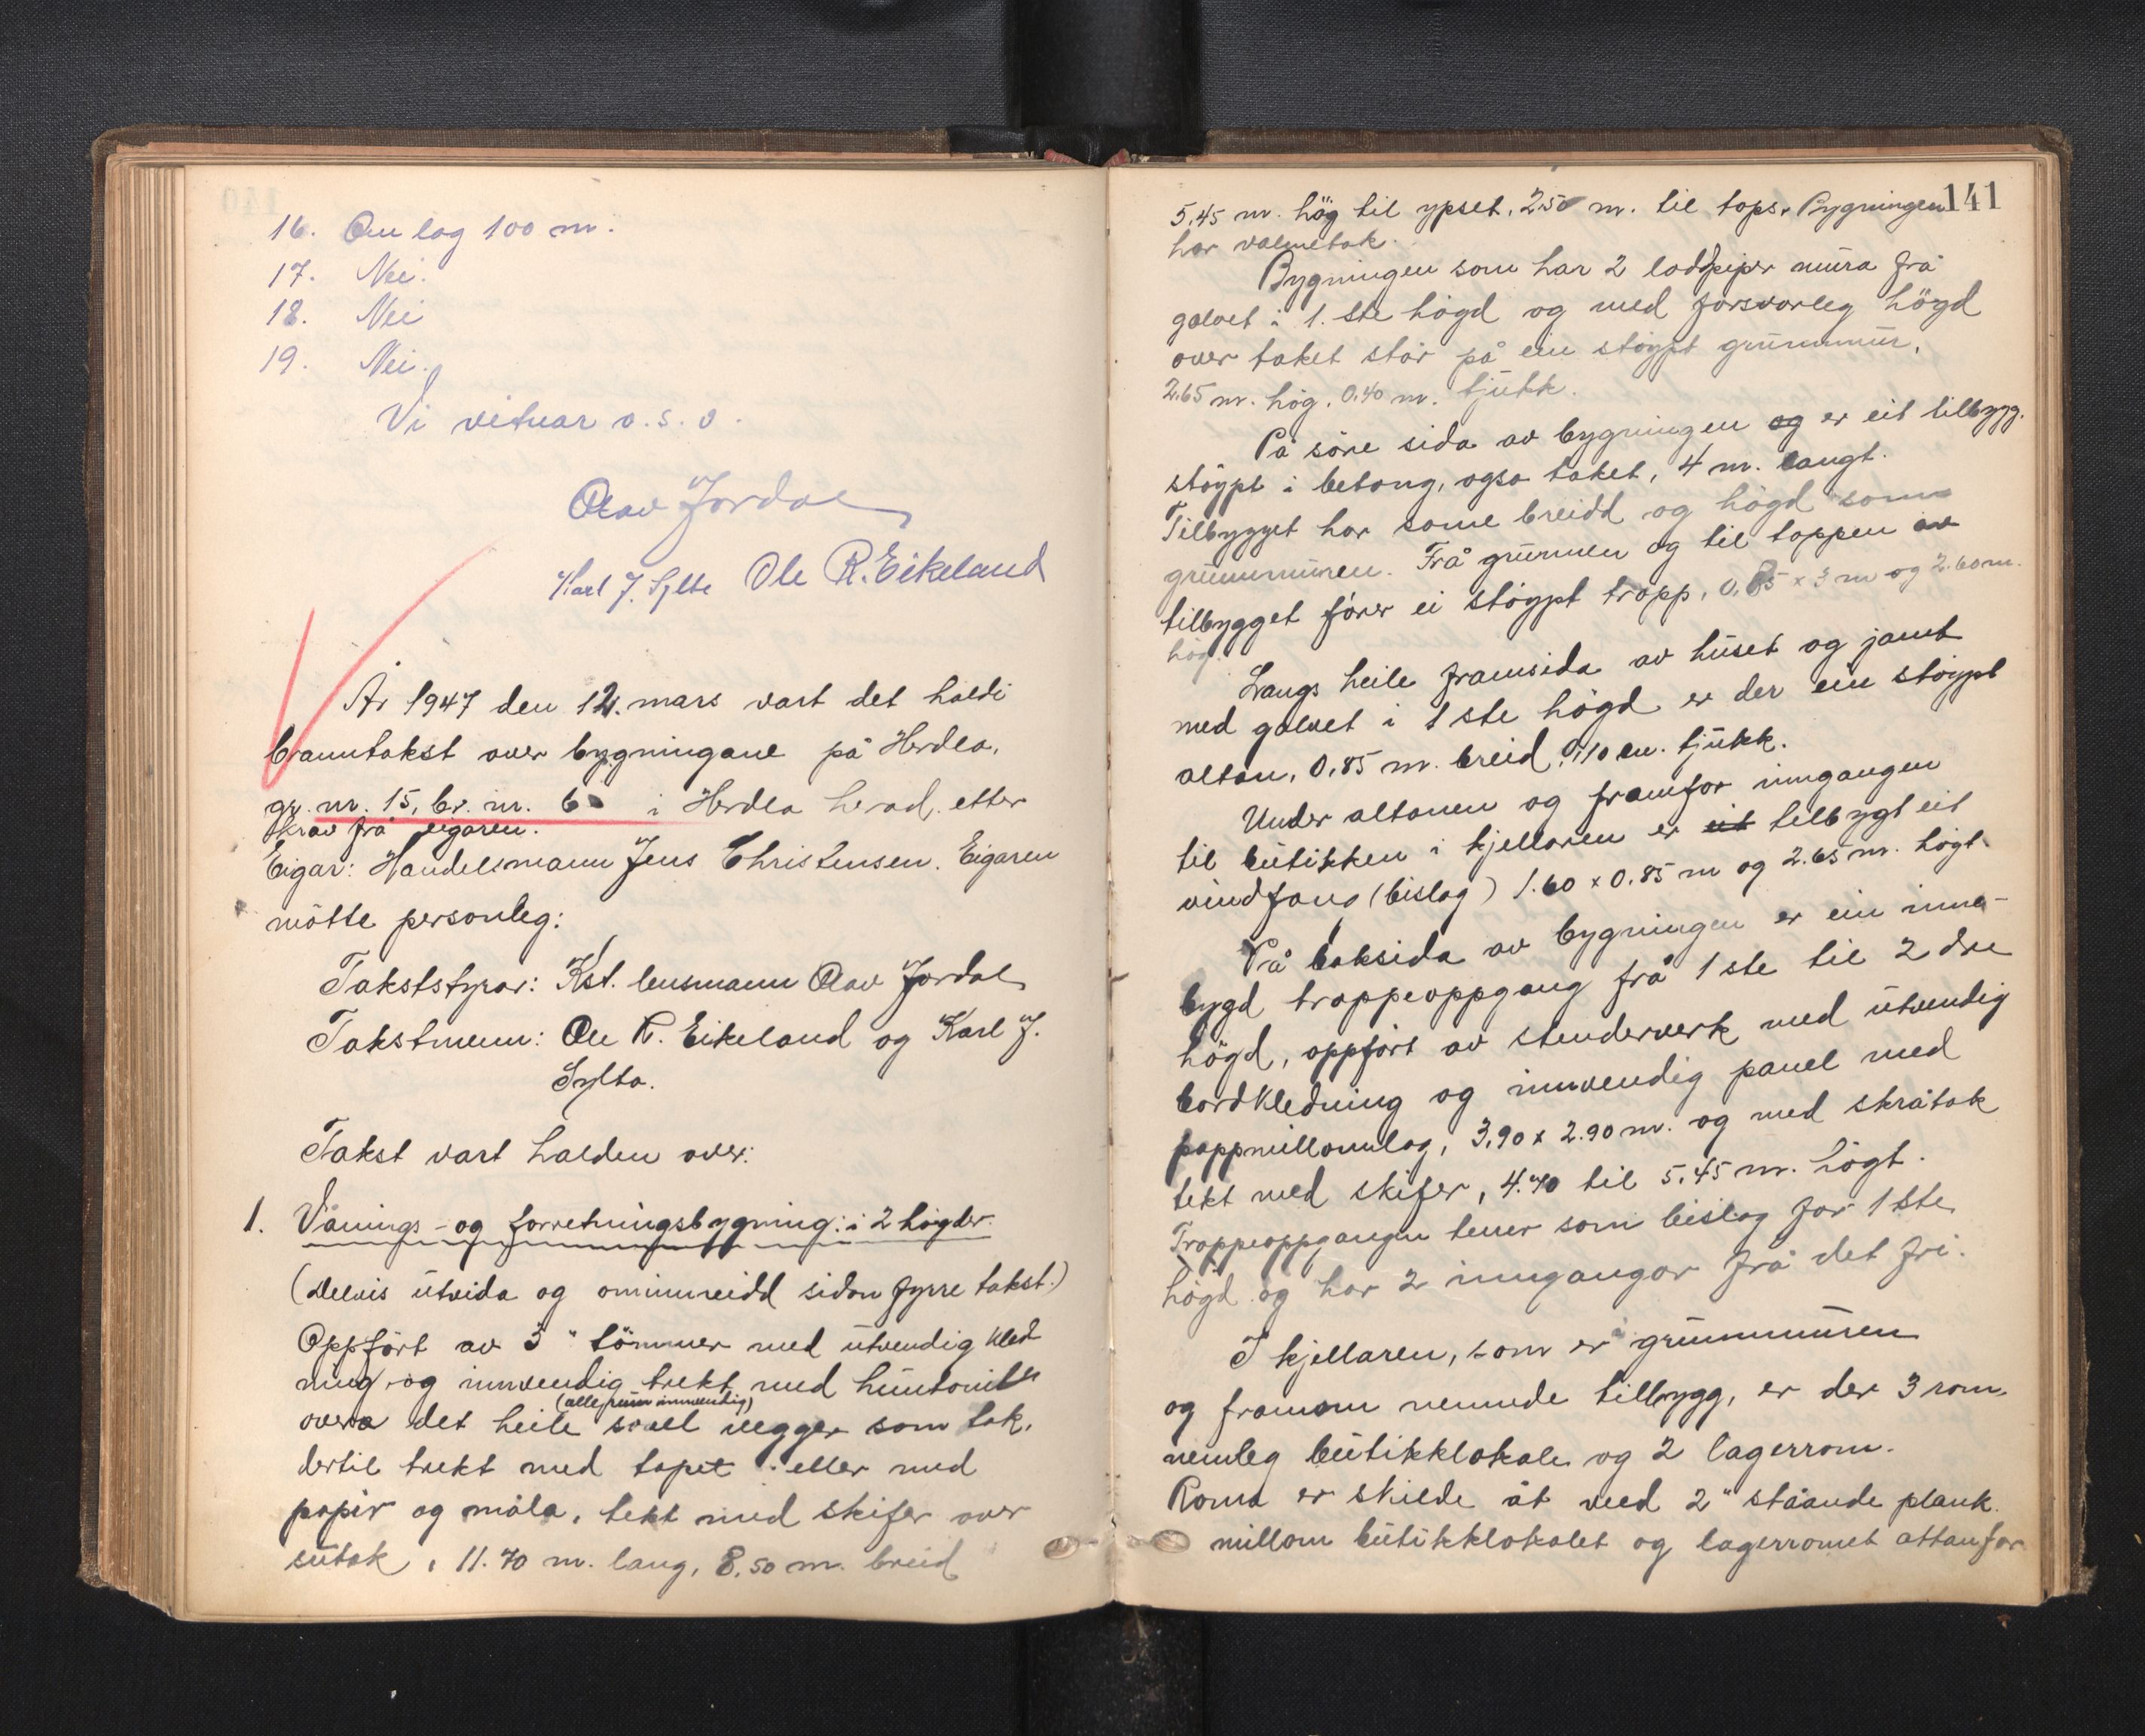 16. Om lag 100 m.
17. Nei.
18. Nei
19. Nei.
Vi vitnar o.s.v.
Olav Jordal
Karl J. Sylta Ole R. Eikeland
År 1947 den 12. mars vart det haldi
branntakst over bygningane på Herdla,
gr. nr. 15, br. nr. 6 i Herdla herad, etter
krav frå eigaren.
Eigar: Handelsmann Jens Christensen. Eigaren
mötte personleg:
Takststyrar: Kst. lensmann Olav Jordal
Takstmenn: Ole R. Eikeland og Karl J.
Sylta.
Takst vart halden over:
1. Vånings- og forretningsbygning: i 2 högder.
(Delvis utvida og ominnreidd sidan fyrre takst.)
Oppfört av 3" tömmer med utvendig kled
ning og innvendig trekt med huntonit
(alle rum innvendig)
overa det heile såvel vegger som tak,
dertil trekt med tapet eller med
papir og måla, tekt med skifer over
sutak, 11.70 m. lang, 8.50 m. breid
141
5.45 m. hög til ypset, 2.50 m. til tops. Bygningen
har valmetak.
Bygningen som har 2 lodpiper mura frå
golvet i 1.ste högd og med forsvarleg högd
over taket står på ein stöypt grunnmur,
2.65 m. hög, 0.40 m. tjukk.
På söre sida av bygningen og er eit tilbygg.
stöypt i betong, også taket, 4 m. langt.
Tilbygget har same breidd og högd som
grunnmuren. Frå grunnen og til toppen av
tilbygget förer ei stöypt tropp, 0.85 x 3 m og 2.60 m.
hög.
Langs heile framsida av huset og jamt
med golvet i 1 ste högd er der ein stöypt
altan, 0.85 m. breid, 10 cm. tjukk.
Under altanen og framfor inngangen
til butikken i kjellaren er eit tilbygt eit
vindfang (bislag) 1.60 x 0.85 m og 2.65 m. högt.
På baksida av bygningen er ein inne-
bygd troppeoppgang frå 1 ste til 2 dre
högd, oppfört av stenderverk med utvendig
bordkledning og innvendig panel med
pappmillomlag, 3.90 x 2.90 m. og med skråtak
tekt med skifer, 4.70 til 5.45 m. högt.
Troppeoppgangen tener som bislag for 1 ste
högd og har 2 inngangar frå det fri.
I kjellaren, som er i grunnmuren
og framom nemnde tilbygg, er der 3 rom
nemleg butikklokale og 2 lagerrom.
Roma er skilde åt ved 2" ståande plank
millom butikklokalet og lagerromet attanfor